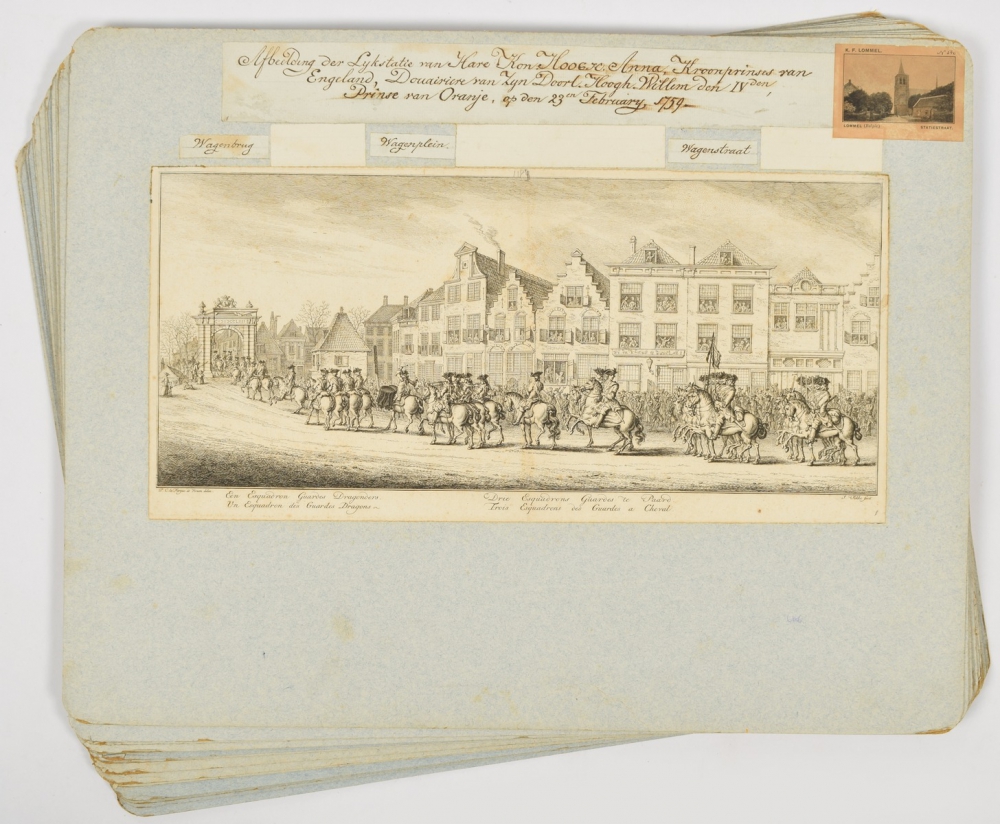 Afbeelding der Lykstatie van Hare Kon Hoogh: Anna, Kroonprinses van
Engeland, Douairiere van Zyn Doorl. Hoogh. Willem den IVden,
Prinse van Oranje, op den 23en February, 1759.
A. F. LOMMEL.
LOMMEL
STATIESTRAAT.
Wagenbrug
Wagenplein.
Wagenstraat
Een Esquadron Guardes Dragonders.
Un Esquadron des Guardes Dragons.
Drie Esquadrons Guardes te Paard
Trois Esquadrons des Guardes a Cheval